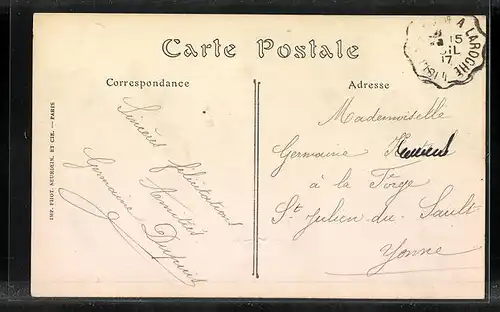 Carte Postale
Correspondance
Adresse
A LAROCHE
15
17
Sincères félicitations
Amitiés
Germaine Dupuis
Mademoiselle
Germaine
à la Forge
St Julien du Sault
Yonne
IMP. PHOT. NEURDEIN, ET CIE. — PARIS